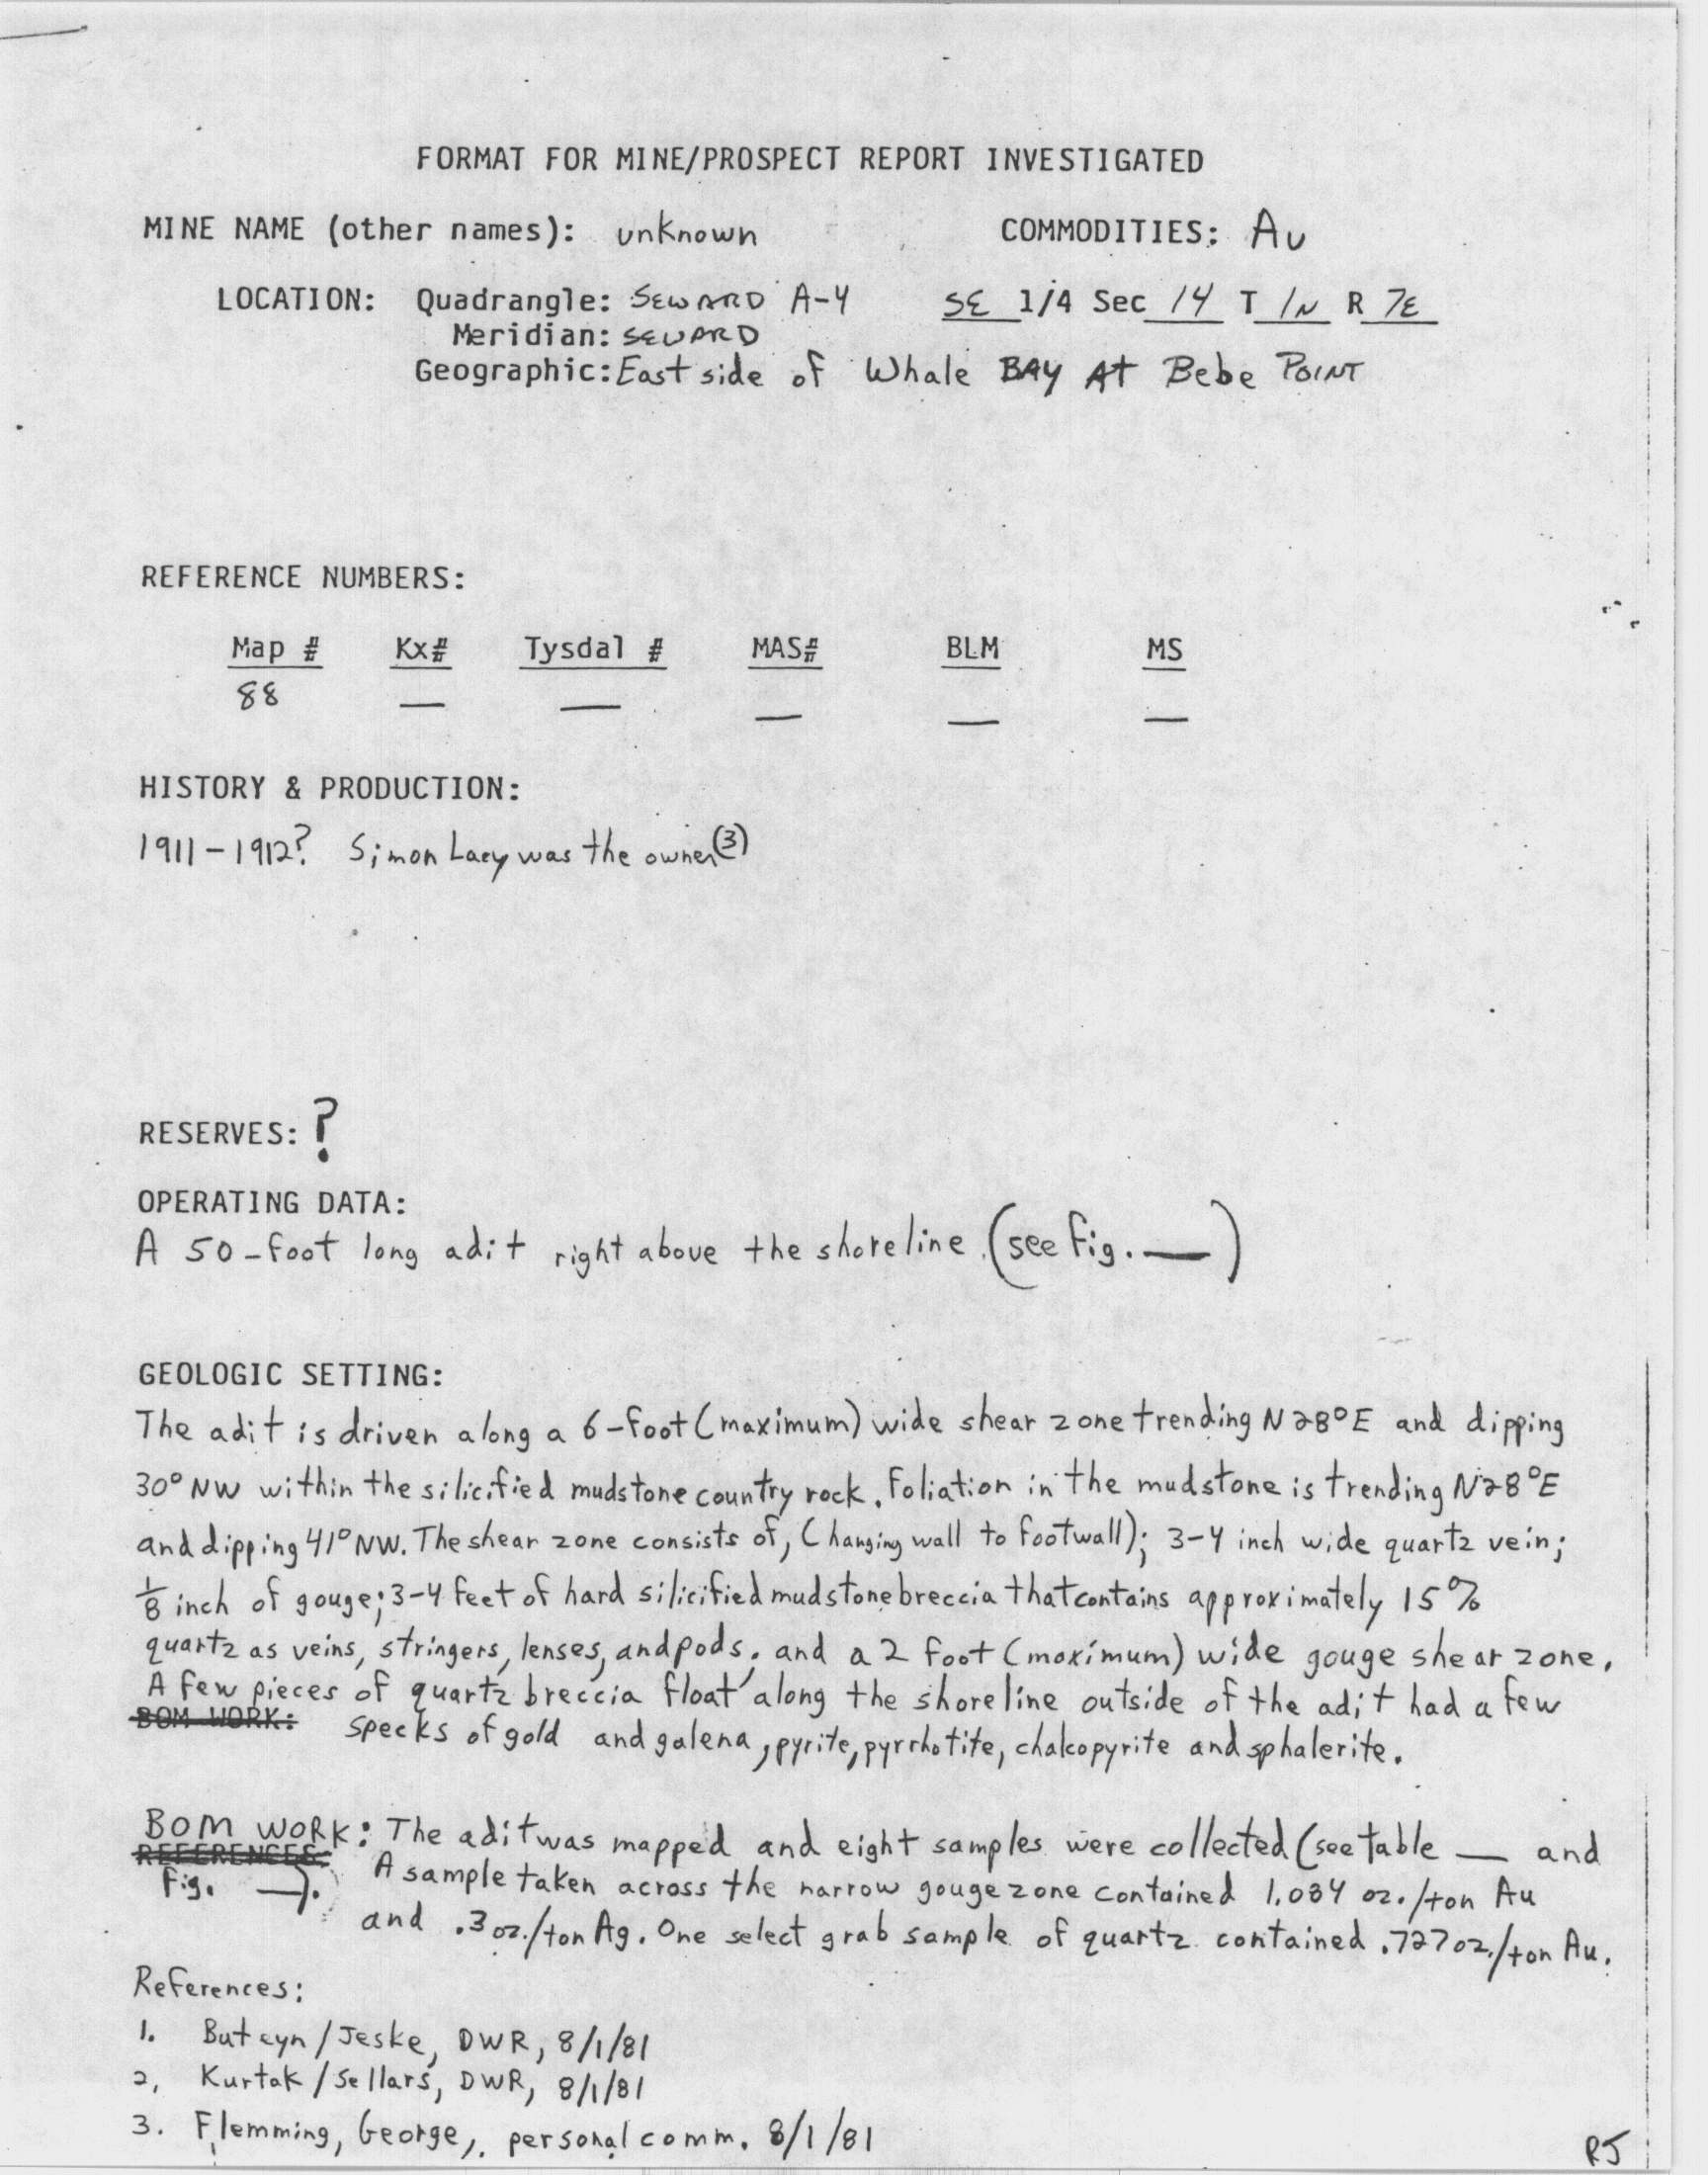 FORMAT FOR MINE/PROSPECT REPORT INVESTIGATED
MINE NAME (other names): unknown COMMODITIES: Au
LOCATION: Quadrangle: SEWARD A-4 SE 1/4 Sec 14 T 1N R 7E
Meridian: SEWARD
Geographic: East side of Whale BAY At Bebe POINT
REFERENCE NUMBERS:
Map # Kx# Tysdal # MAS# BLM MS
88 — — — — —
HISTORY & PRODUCTION:
1911-1912? Simon Lacy was the owner(3)
RESERVES: ?
OPERATING DATA:
A 50-foot long adit right above the shoreline. (see fig. —)
GEOLOGIC SETTING:
The adit is driven along a 6-foot (maximum) wide shear zone trending N28°E and dipping
30° NW within the silicified mudstone country rock. Foliation in the mudstone is trending N28°E
and dipping 41° NW. The shear zone consists of, (hanging wall to footwall); 3-4 inch wide quartz vein;
1/8 inch of gouge; 3-4 feet of hard silicified mudstone breccia that contains approximately 15%
quartz as veins, stringers, lenses, and pods, and a 2 foot (maximum) wide gouge shear zone.
A few pieces of quartz breccia float along the shoreline outside of the adit had a few
BOM WORK: specks of gold and galena, pyrite, pyrrhotite, chalcopyrite and sphalerite.
BOM WORK: The adit was mapped and eight samples were collected (see table — and
REFERENCES:
Fig. —). A sample taken across the narrow gouge zone contained 1.084 oz./ton Au
and .3 oz./ton Ag. One select grab sample of quartz contained .727 oz./ton Au.
References:
1. Buteyn/Jeske, DWR, 8/1/81
2, Kurtak/Sellars, DWR, 8/1/81
3. Flemming, George, personal comm. 8/1/81
RJ